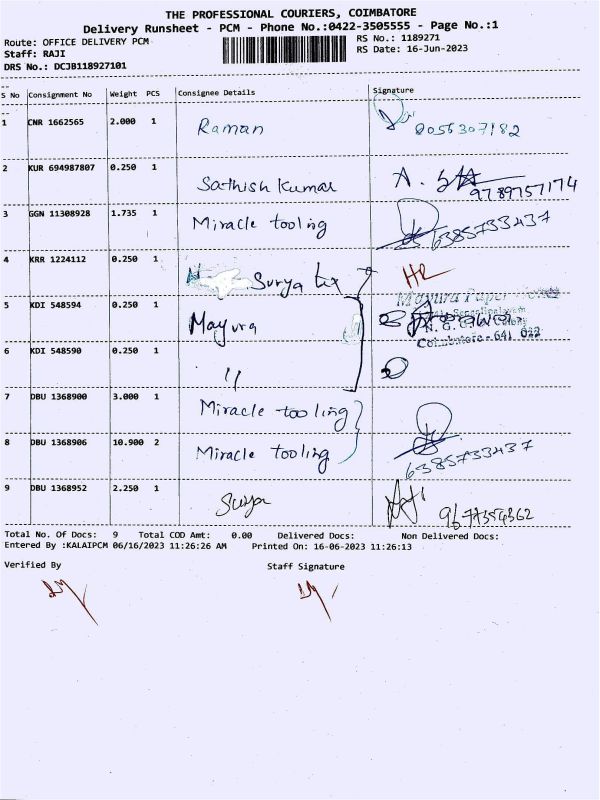 THE PROFESSIONAL COURIERS, COIMBATORE
Delivery Runsheet - PCM - Phone No.:0422-3505555 - Page No.:1
Route: OFFICE DELIVERY PCM
RS No.: 1189271
Staff: RAJI
RS Date: 16-Jun-2023
DRS No.: DCJB118927101
S No Consignment No Weight PCS Consignee Details Signature
1 CNR 1662565 2.000 1 Raman 8056307182
2 KUR 694987807 0.250 1 Sathish Kumar A.
9789757174
3 GGN 11308928 1.735 1 Miracle tooling 6385733437
4 KRR 1224112 0.250 1 Surya tex
Mayura Paper
5 KDI 548594 0.250 1 Mayura
Coimbatore - 641 022
6 KDI 548590 0.250 1 "
7 DBU 1368900 3.000 1 Miracle tooling
8 DBU 1368906 10.900 2 Miracle tooling 6385733437
9 DBU 1368952 2.250 1 Surya
Total No. Of Docs: 9 Total COD Amt: 0.00 Delivered Docs: Non Delivered Docs:
Entered By :KALAIPCM 06/16/2023 11:26:26 AM Printed On: 16-06-2023 11:26:13
Verified By Staff Signature